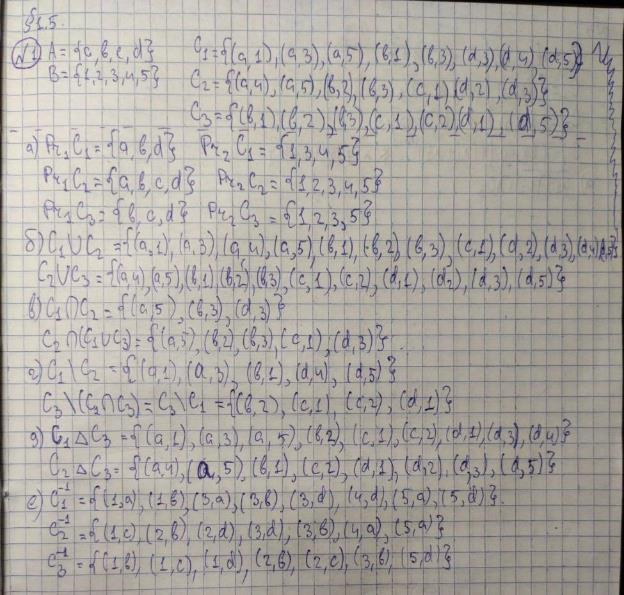 §1.5.
№1 A = {a,b,c,d} C₁ = {(a,1), (a,3), (a,5), (b,1), (b,3), (d,3), (d,4), (d,5)}
B = {1,2,3,4,5} C₂ = {(a,4), (a,5), (b,2), (b,3), (c,1), (d,2), (d,3)}
C₃ = {(b,1), (b,2), (b,3), (c,1), (c,2), (d,1), (d,5)}
а) Pr₁C₁ = {a,b,d} Pr₂C₁ = {1,3,4,5}
Pr₁C₂ = {a,b,c,d} Pr₂C₂ = {1,2,3,4,5}
Pr₁C₃ = {b,c,d} Pr₂C₃ = {1,2,3,5}
б) C₁∪C₂ = {(a,1), (a,3), (a,4), (a,5), (b,1), (b,2), (b,3), (c,1), (d,2), (d,3), (d,4), (d,5)}
C₂∪C₃ = {(a,4), (a,5), (b,1), (b,2), (b,3), (c,1), (c,2), (d,1), (d,2), (d,3), (d,5)}
в) C₁∩C₂ = {(a,5), (b,3), (d,3)}
C₂∩(C₁∪C₃) = {(a,5), (b,2), (b,3), (c,1), (d,3)}
г) C₁\C₂ = {(a,1), (a,3), (b,1), (d,4), (d,5)}
C₃\(C₁∩C₃) = C₃\C₁ = {(b,2), (c,1), (c,2), (d,1)}
д) C₁△C₃ = {(a,1), (a,3), (a,5), (b,2), (c,1), (c,2), (d,1), (d,3), (d,4)}
C₂△C₃ = {(a,4), (a,5), (b,1), (c,2), (d,1), (d,2), (d,3), (d,5)}
е) C₁⁻¹ = {(1,a), (1,b), (3,a), (3,b), (3,d), (4,d), (5,a), (5,d)}.
C₂⁻¹ = {(1,c), (2,b), (2,d), (3,d), (3,b), (4,a), (5,a)}
C₃⁻¹ = {(1,b), (1,c), (1,d), (2,b), (2,c), (3,b), (5,d)}